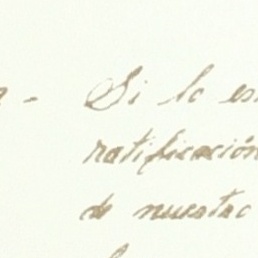 - Si lo es
ratificación
de nuestac